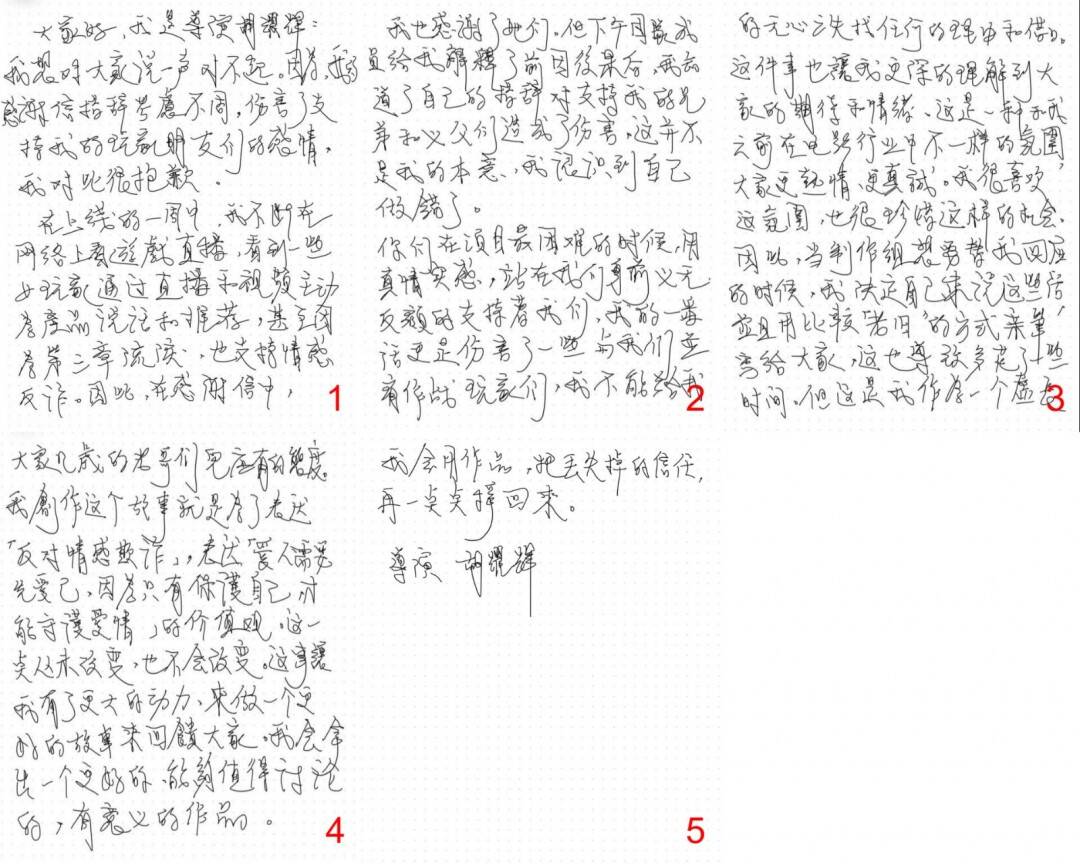 大家好，我是導演胡耀輝：
我想对大家说一声对不起。因為我的
感謝信措辞考慮不周，伤害了支
持我的玩家朋友们的感情，
我对此很抱歉。
在上线的一周中，我不断在
网络上看遊戲直播，看到一些
女玩家通过直播和视频主动
為產品说话和推荐，甚至因
為第二章流淚，也支持情感
反诈。因此，在感谢信中，
1
我也感謝了她们。但下午团队成
員给我解釋了前因後果后，我知
道了自己的措辞对支持我的兄
弟和义父们造成了伤害，这并不
是我的本意，我认识到自己
做錯了。
你们在项目最困难的时候，用
真情实感，站在我们身前义无
反顧的支持着我们，我的一番
话更是伤害了一些与我们並
肩作战玩家们，我不能给我
2
的无心之失找任何的理由和借口。
这件事也讓我更深的理解到大
家的期待和情绪，这是一种和我
之前在电影行业中不一样的氛圍
大家更熱情、更真誠。我很喜欢
这氛圍，也很珍惜这样的机会。
因此，当制作组想要帮我回应
的时候，我决定自己来说这些话
並且用比較“老旧”的方式亲筆
寫给大家，这也導致多花了一些
时间。但这是我作為一个虚長
3
大家几歲的老哥们兒应有的態度。
我創作这个故事就是為了表达
「反对情感欺诈」，表达「爱人需要
先爱己，因為只有保護自己，才
能守護爱情」的价值观。这一
点从未改变，也不会改变。这事讓
我有了更大的动力、来做一个更
好的故事来回饋大家。我会拿
出一个更好的、能夠值得讨论
的，有意义的作品。
4
我会用作品，把丢失掉的信任，
再一点点掙回来。
導演 胡耀輝
5